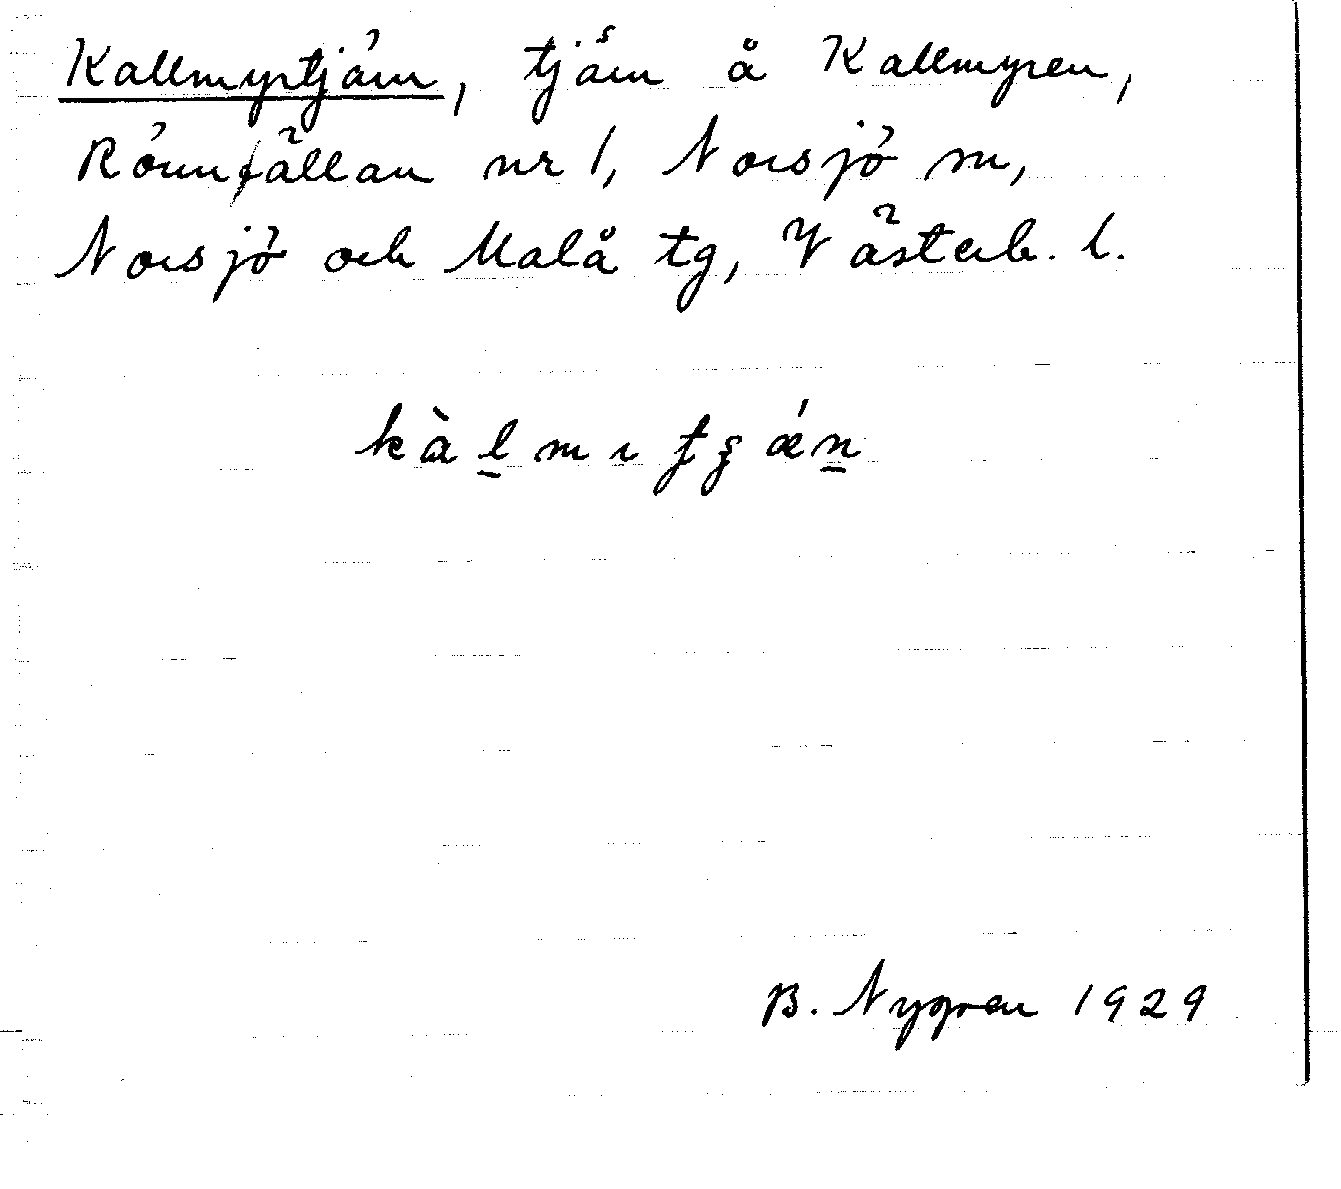 Kallmyrtjärn, tjärn å Kallmyren,
Rönnfällan nr 1, Norsjö sn,
Norsjö och Malå tg, Västerb. l.
B. Nygren 1929